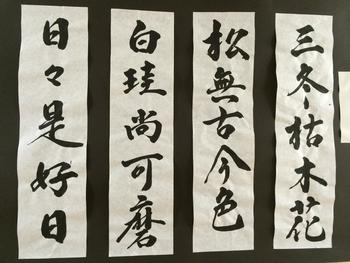 三冬枯木花
松無古今色
白珪尚可磨
日々是好日